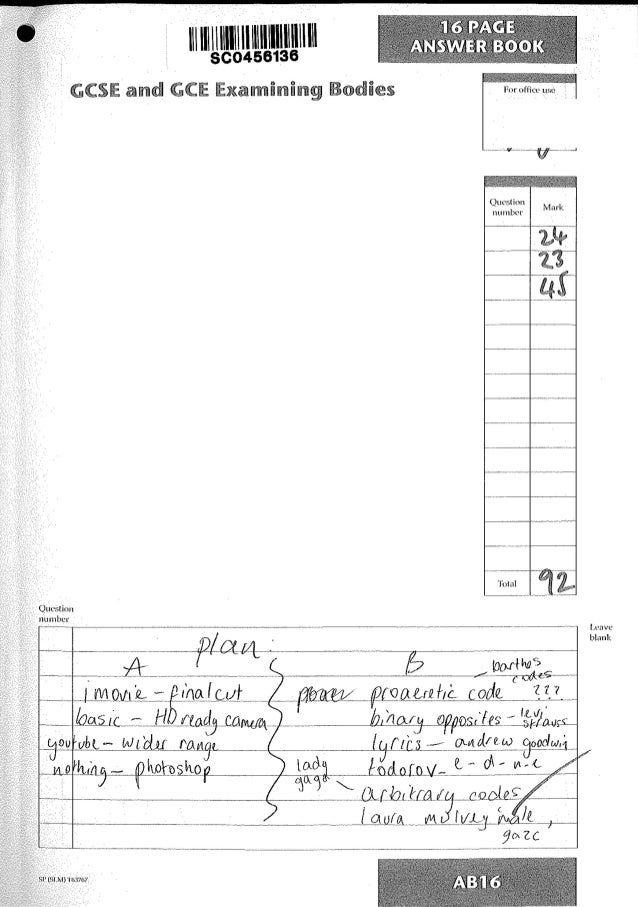 16 PAGE
ANSWER BOOK
SC0456136
GCSE and GCE Examining Bodies
For office use
Question number Mark
24
23
45
Total 92
Question number
Leave blank
plan:
A
imovie - final cut
basic - HD ready camera
youtube - wider range
nothing - photoshop
B
barthes codes
proaeretic code ???
binary opposites - levi strauss
lyrics - andrew goodwin
todorov - e - d - n-e
lady gaga
arbitrary codes
laura mulvey male gaze
SP (SLM) T63767
AB16